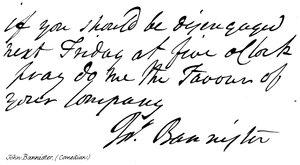 if you should be disengaged
next Friday at five oClock
pray do me the Favour of
your Company
Jn° Bannister
John Bannister, (Comedian.)